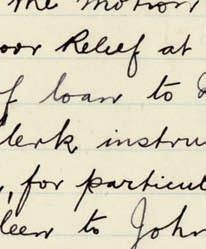 the motion
oor Relief at
of loan to
lerk instru
, for particul
leen to John